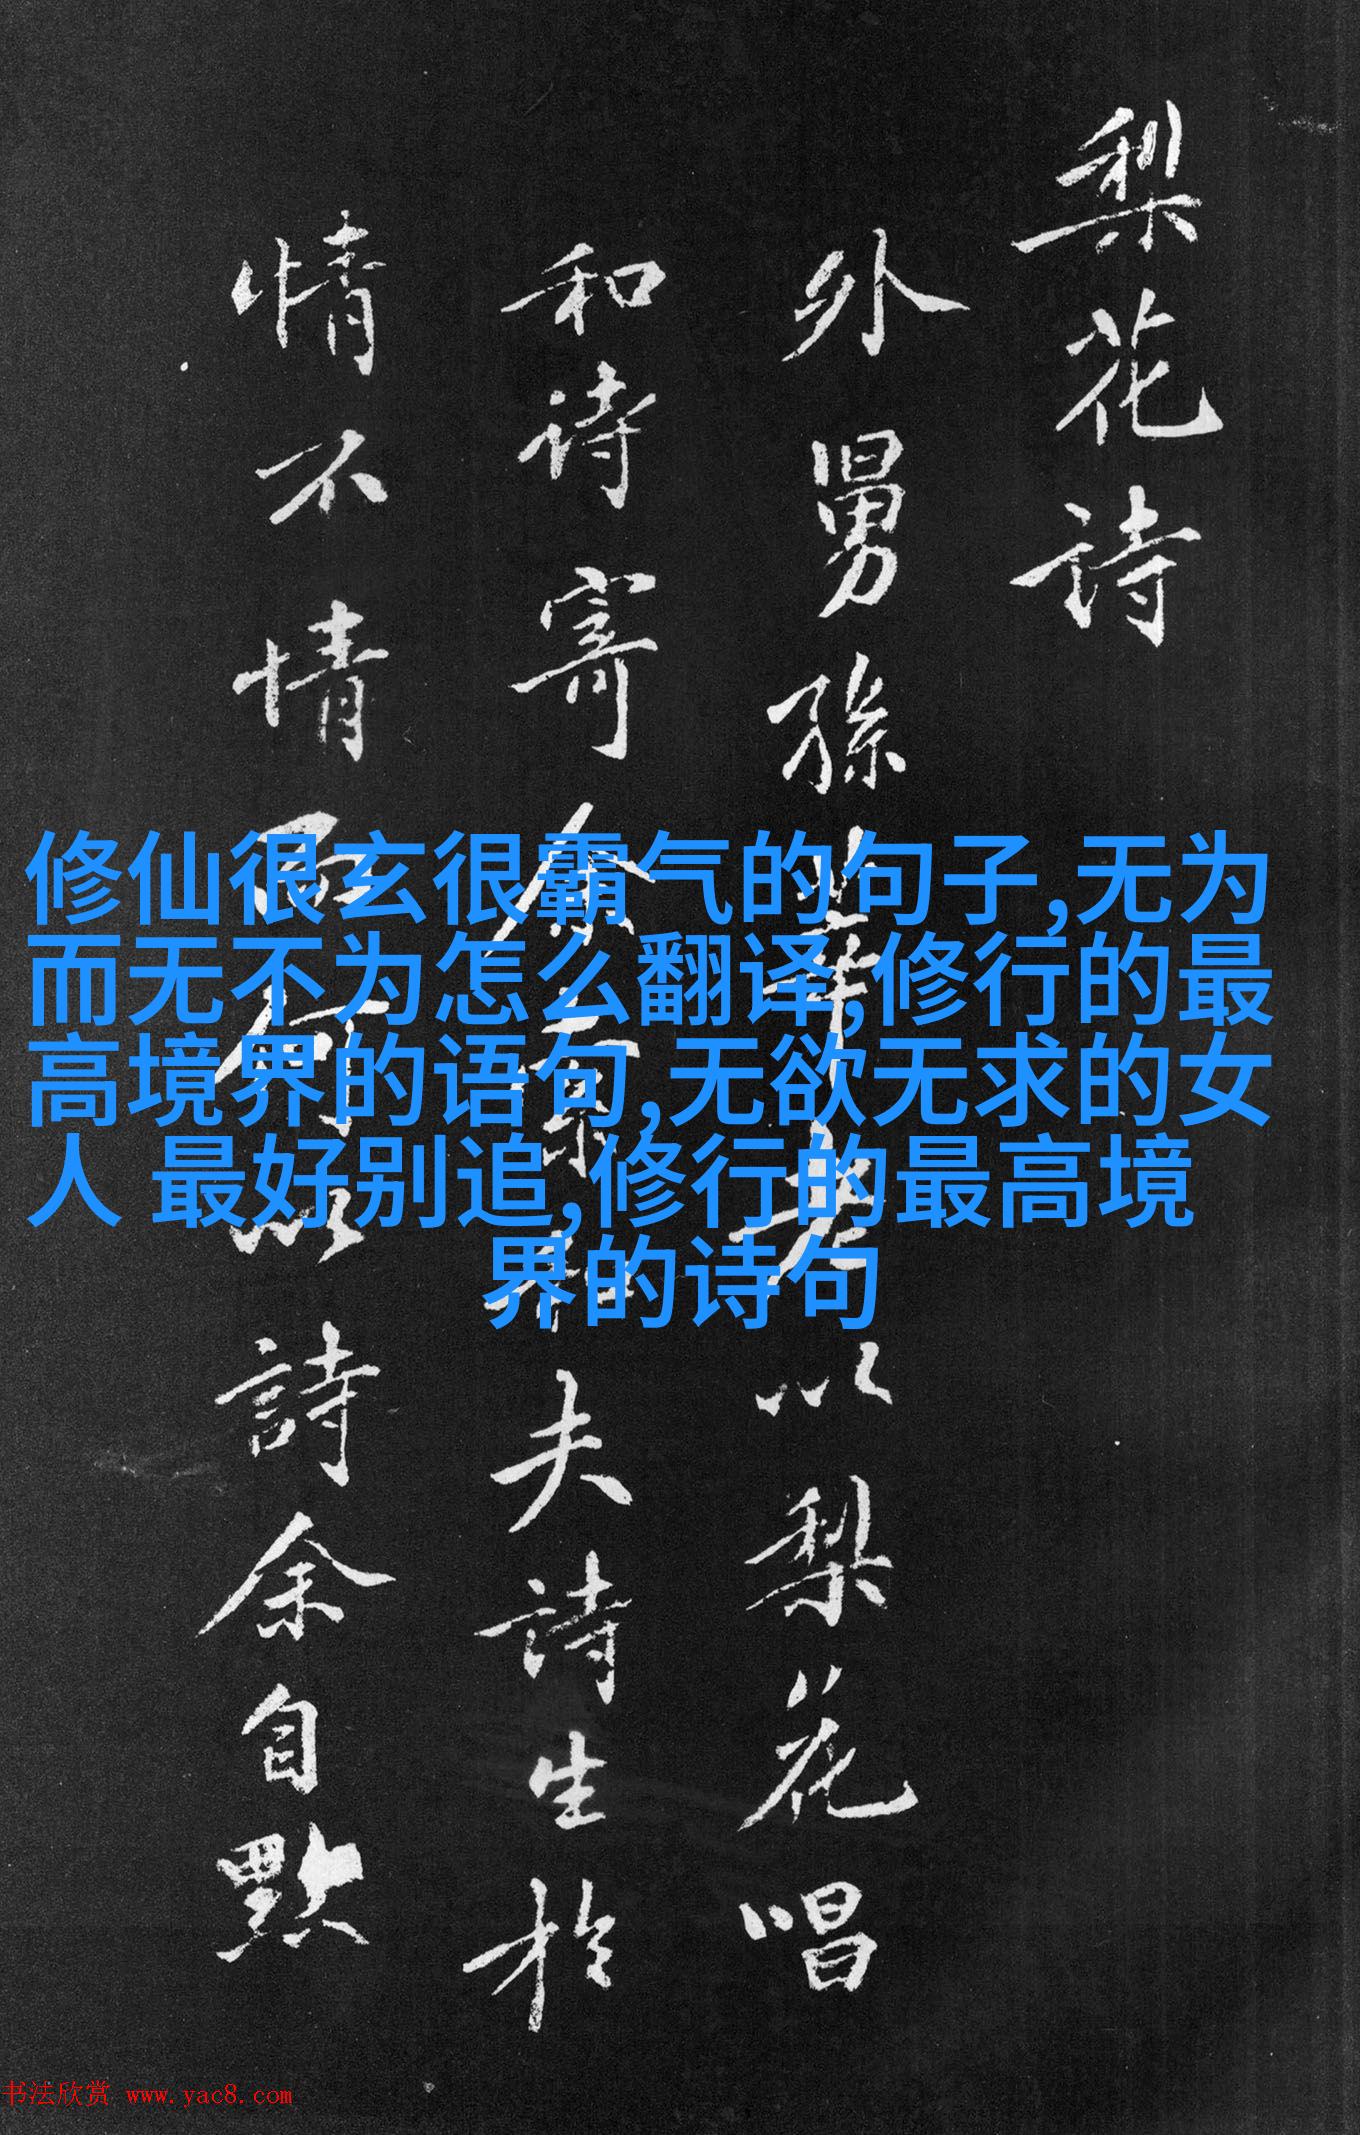 梨花诗
外舅孫
以梨花唱
和诗寄余
夫詩生於
情不情
詩余自默
修仙很玄很霸气的句子,无为
而无不为怎么翻译,修行的最
高境界的语句,无欲无求的女
人 最好别追,修行的最高境
界的诗句
书法欣赏 www.yac8.com